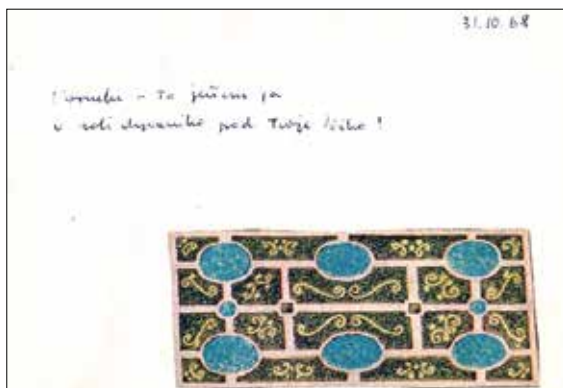 31.10.68
– To jestem ja
w roli dywanika pod Twoje łóżko!